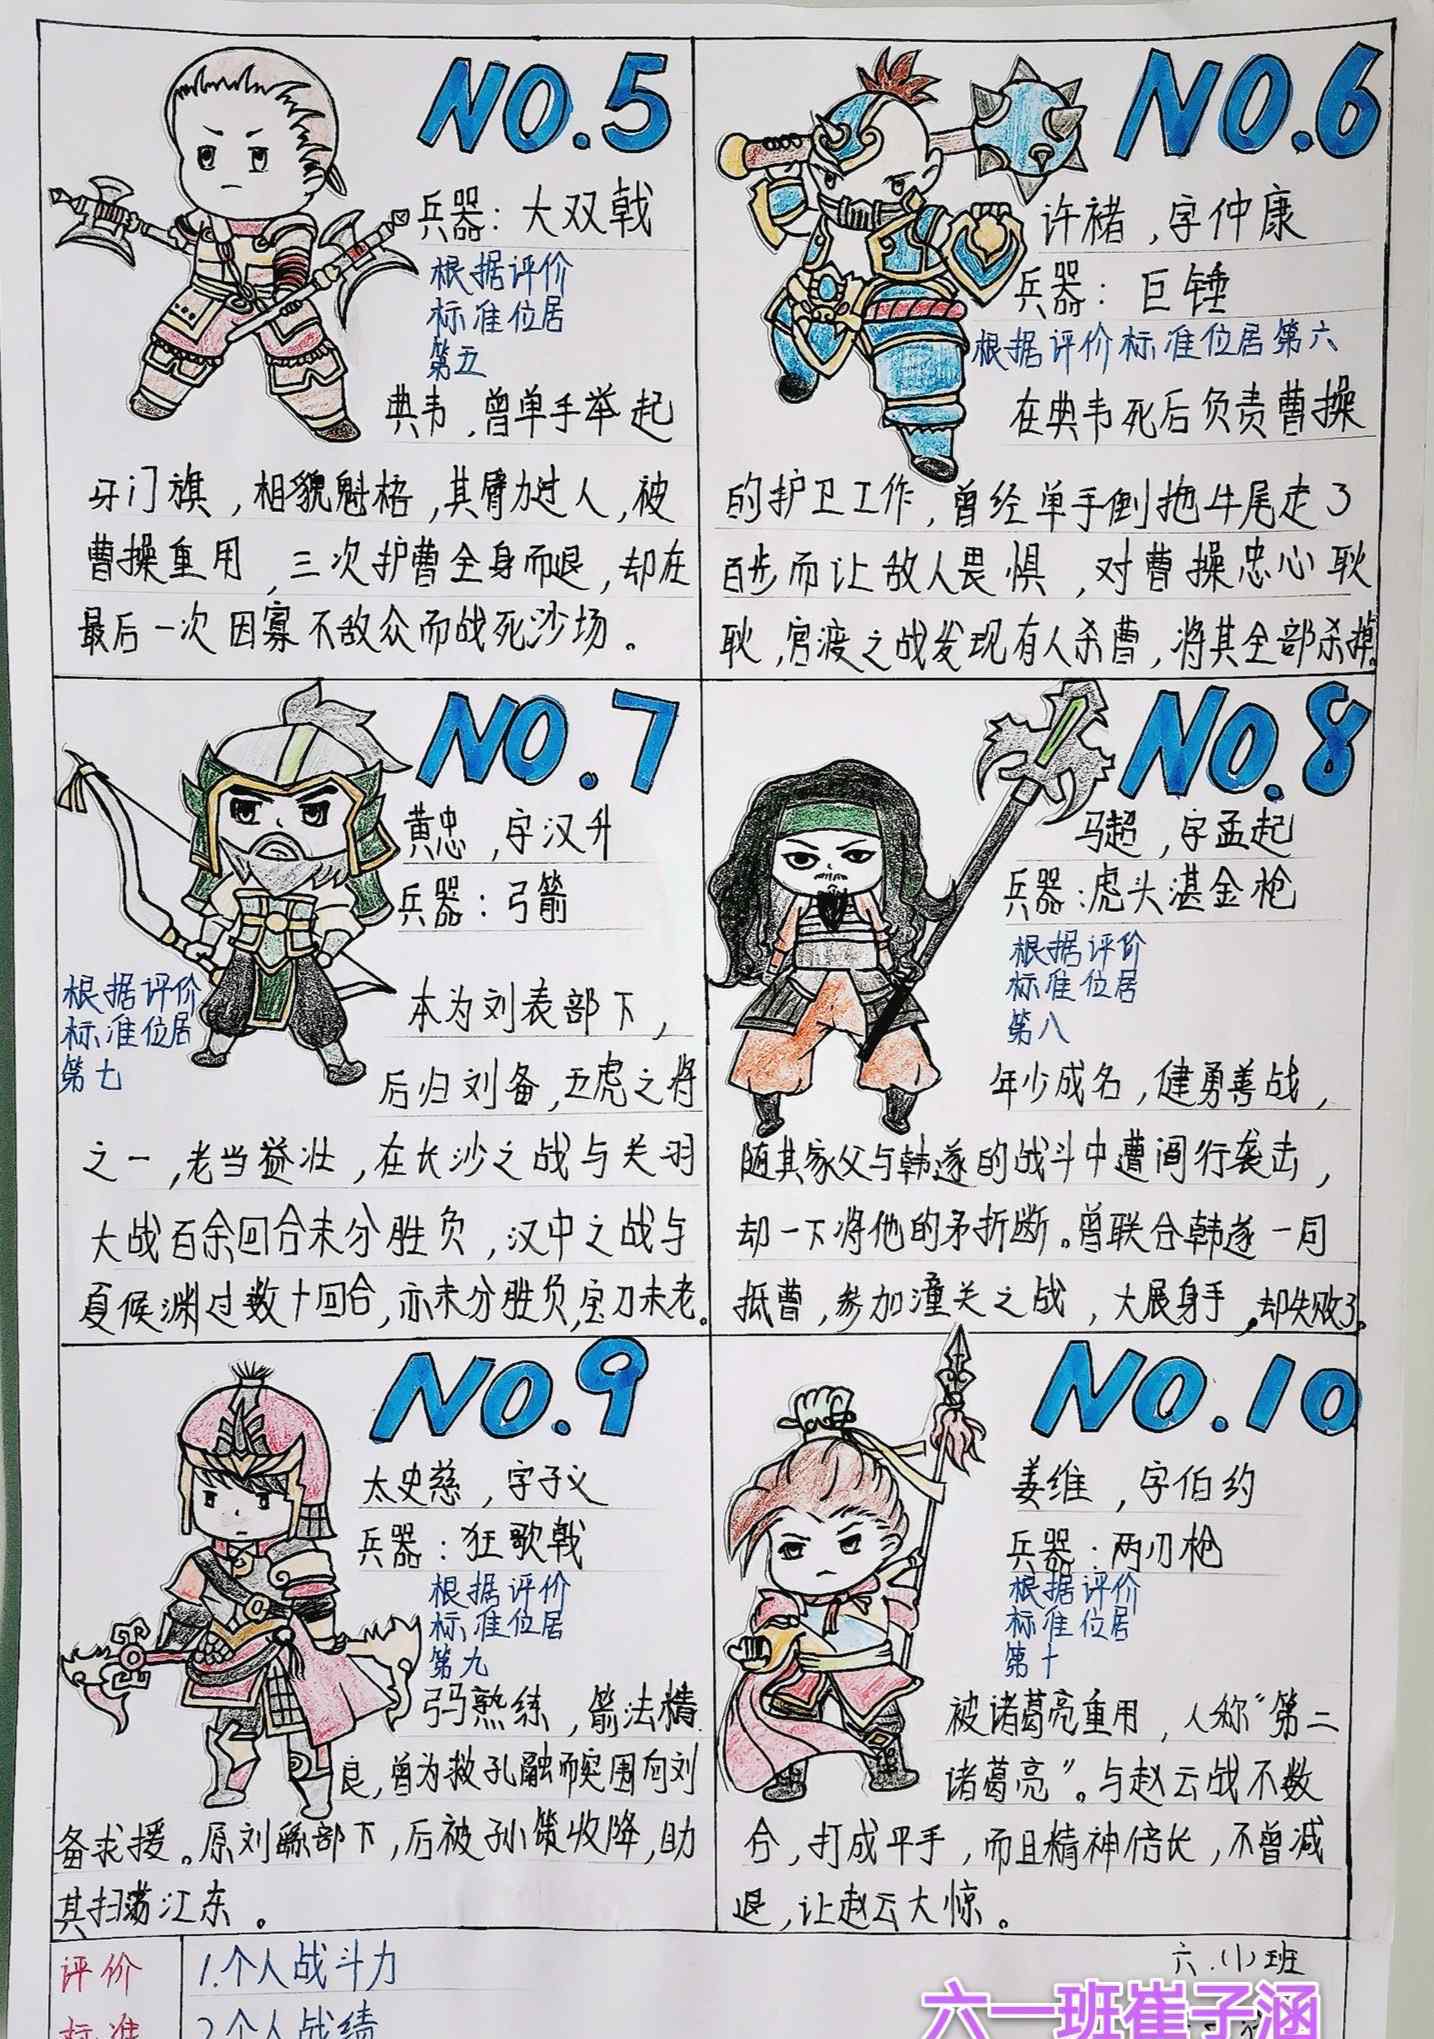 NO.5
兵器：大双戟
根据评价
标准位居
第五
典韦，曾单手举起
牙门旗，相貌魁梧，其臂力过人，被
曹操重用，三次护曹全身而退，却在
最后一次因寡不敌众而战死沙场。
NO.6
许褚，字仲康
兵器：巨锤
根据评价标准位居第六
在典韦死后负责曹操
的护卫工作，曾经单手倒拖牛尾走了
百步而让敌人畏惧，对曹操忠心耿
耿，官渡之战发现有人杀曹，将其全部杀掉。
NO.7
黄忠，字汉升
兵器：弓箭
根据评价
标准位居
第七
本为刘表部下，
后归刘备，五虎之将
之一，老当益壮，在长沙之战与关羽
大战百余回合未分胜负，汉中之战与
夏候渊过数十回合，亦未分胜负，宝刀未老。
NO.8
马超，字孟起
兵器：虎头湛金枪
根据评价
标准位居
第八
年少成名，健勇善战，
随其家父与韩遂的战斗中遭阎行袭击，
却一下将他的矛折断。曾联合韩遂一同
抵曹，参加潼关之战，大展身手，却失败了。
NO.9
太史慈，字子义
兵器：狂歌戟
根据评价
标准位居
第九
弓马熟练，箭法精
良，曾为救孔融而突围向刘
备求援。原刘繇部下，后被孙策收降，助
其扫荡江东。
NO.10
姜维，字伯约
兵器：两刃枪
根据评价
标准位居
第十
被诸葛亮重用，人称“第二
诸葛亮”。与赵云战不数
合，打成平手，而且精神倍长，不曾减
退，让赵云大惊。
评价
标准
1.个人战斗力
2.个人战绩
六.(1)班
六一班崔子涵